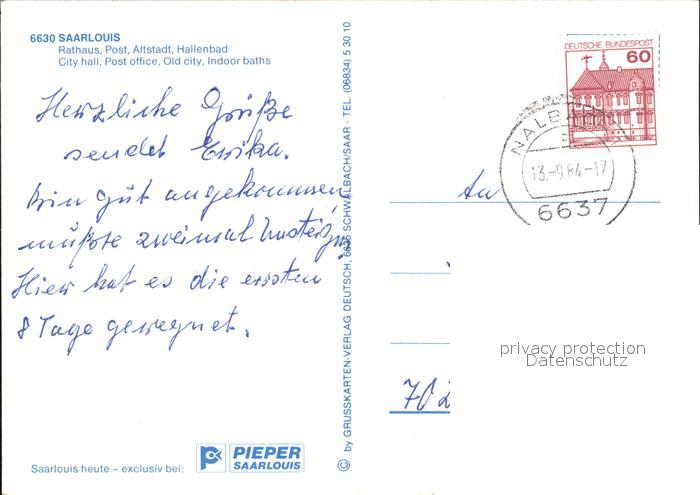 6630 SAARLOUIS
Rathaus, Post, Altstadt, Hallenbad
City hall, Post office, Old city, Indoor baths
Herzliche Grüße
sendet Erika.
Bin gut angekommen
mußte zweimal Umsteigen
Hier hat es die ersten
8 Tage geregnet.
Saarlouis heute – exclusiv bei:
PIEPER
SAARLOUIS
© by GRUSSKARTEN-VERLAG DEUTSCH, 6635 SCHWALBACH/SAAR · TEL. (06834) 5 30 10
DEUTSCHE BUNDESPOST
60
NALBACH
13.-9.84-17
6637
An
702
privacy protection
Datenschutz